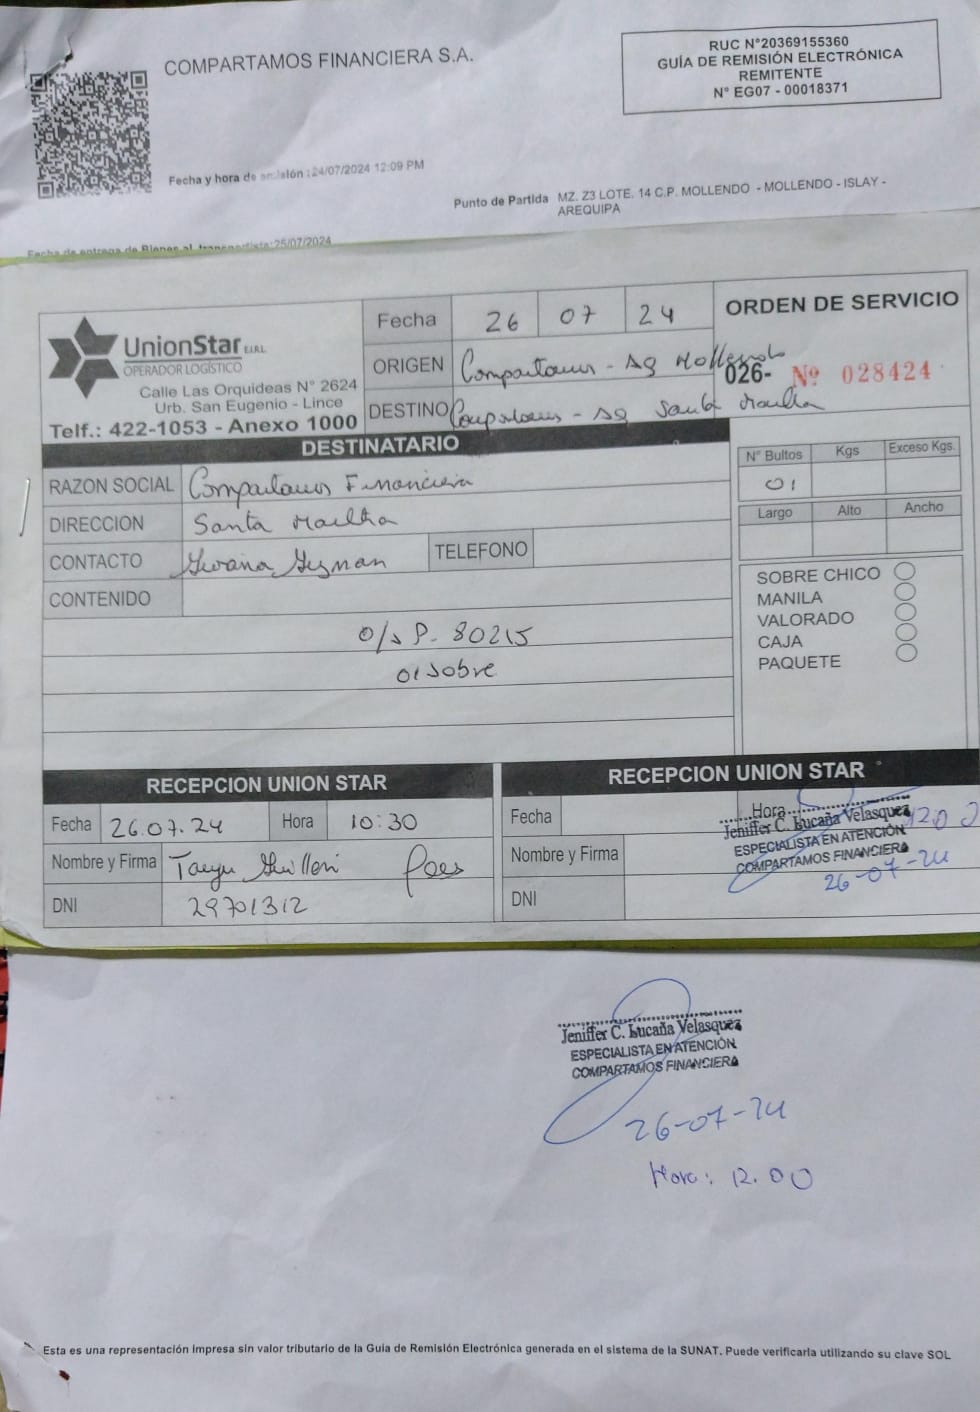 COMPARTAMOS FINANCIERA S.A.
RUC N°20369155360
GUÍA DE REMISIÓN ELECTRÓNICA
REMITENTE
N° EG07 - 00018371
Fecha y hora de emisión :24/07/2024 12:09 PM
Punto de Partida MZ. Z3 LOTE. 14 C.P. MOLLENDO - MOLLENDO - ISLAY -
AREQUIPA
Fecha de entrega de Bienes al transportista:25/07/2024
UnionStar E.I.R.L
OPERADOR LOGÍSTICO
Calle Las Orquideas N° 2624
Urb. San Eugenio - Lince
Telf.: 422-1053 - Anexo 1000
Fecha 26 07 24
ORIGEN Compartamos - Ag Mollendo
DESTINO Compartamos - Ag Santa Martha
ORDEN DE SERVICIO
026- Nº 028424
DESTINATARIO
RAZON SOCIAL Compartamos Financiera
DIRECCION Santa Martha
CONTACTO Guzman TELEFONO
CONTENIDO
O/S P- 80215
01 Sobre
N° Bultos Kgs Exceso Kgs.
01
Largo Alto Ancho
SOBRE CHICO
MANILA
VALORADO
CAJA
PAQUETE
RECEPCION UNION STAR
Fecha 26.07.24 Hora 10:30
Nombre y Firma Guillen
DNI 29701312
RECEPCION UNION STAR
Fecha Hora
Nombre y Firma
DNI
Jeniffer C. Lucaña Velasquez
ESPECIALISTA EN ATENCIÓN
COMPARTAMOS FINANCIERA
26-07-24
Jeniffer C. Lucaña Velasquez
ESPECIALISTA EN ATENCIÓN
COMPARTAMOS FINANCIERA
26-07-24
Hora: 12.00
Esta es una representación impresa sin valor tributario de la Guia de Remisión Electrónica generada en el sistema de la SUNAT. Puede verificarla utilizando su clave SOL